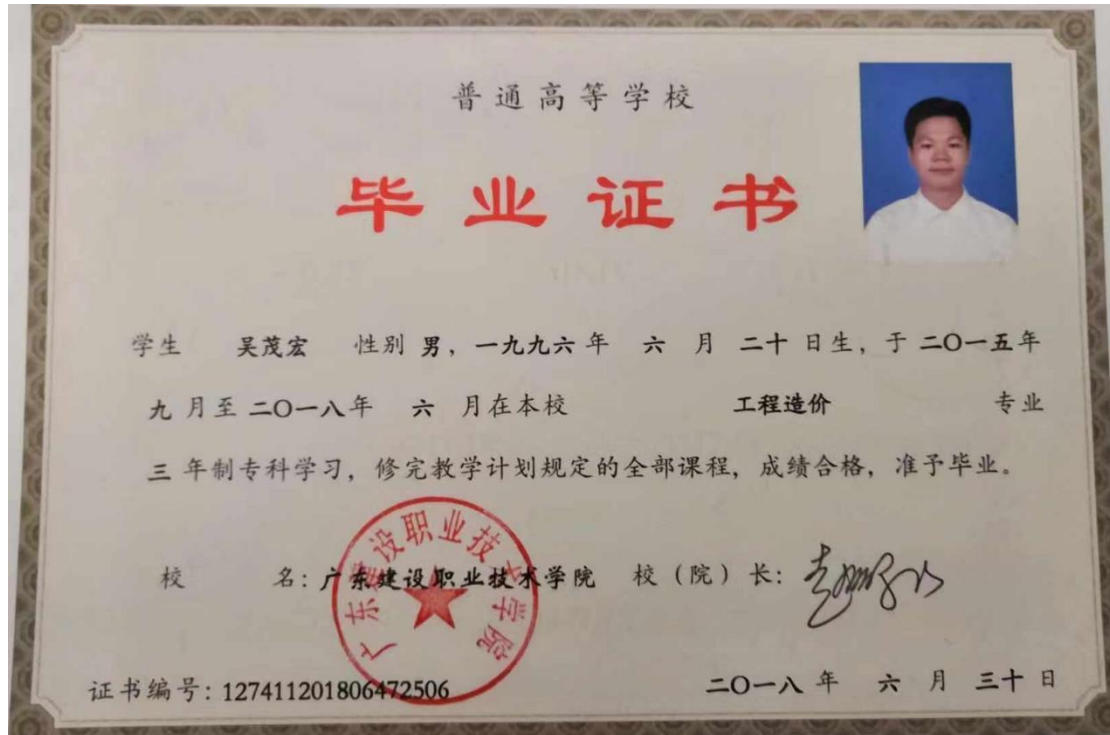 普通高等学校
毕业证书
学生 吴茂宏 性别 男，一九九六年 六 月 二十 日生，于 二〇一五年
九 月至 二〇一八年 六 月在本校 工程造价 专业
三 年制专科学习，修完教学计划规定的全部课程，成绩合格，准予毕业。
校 名：广东建设职业技术学院 校（院）长：
广东建设职业技术学院
证书编号：127411201806472506 二〇一八 年 六 月 三十 日